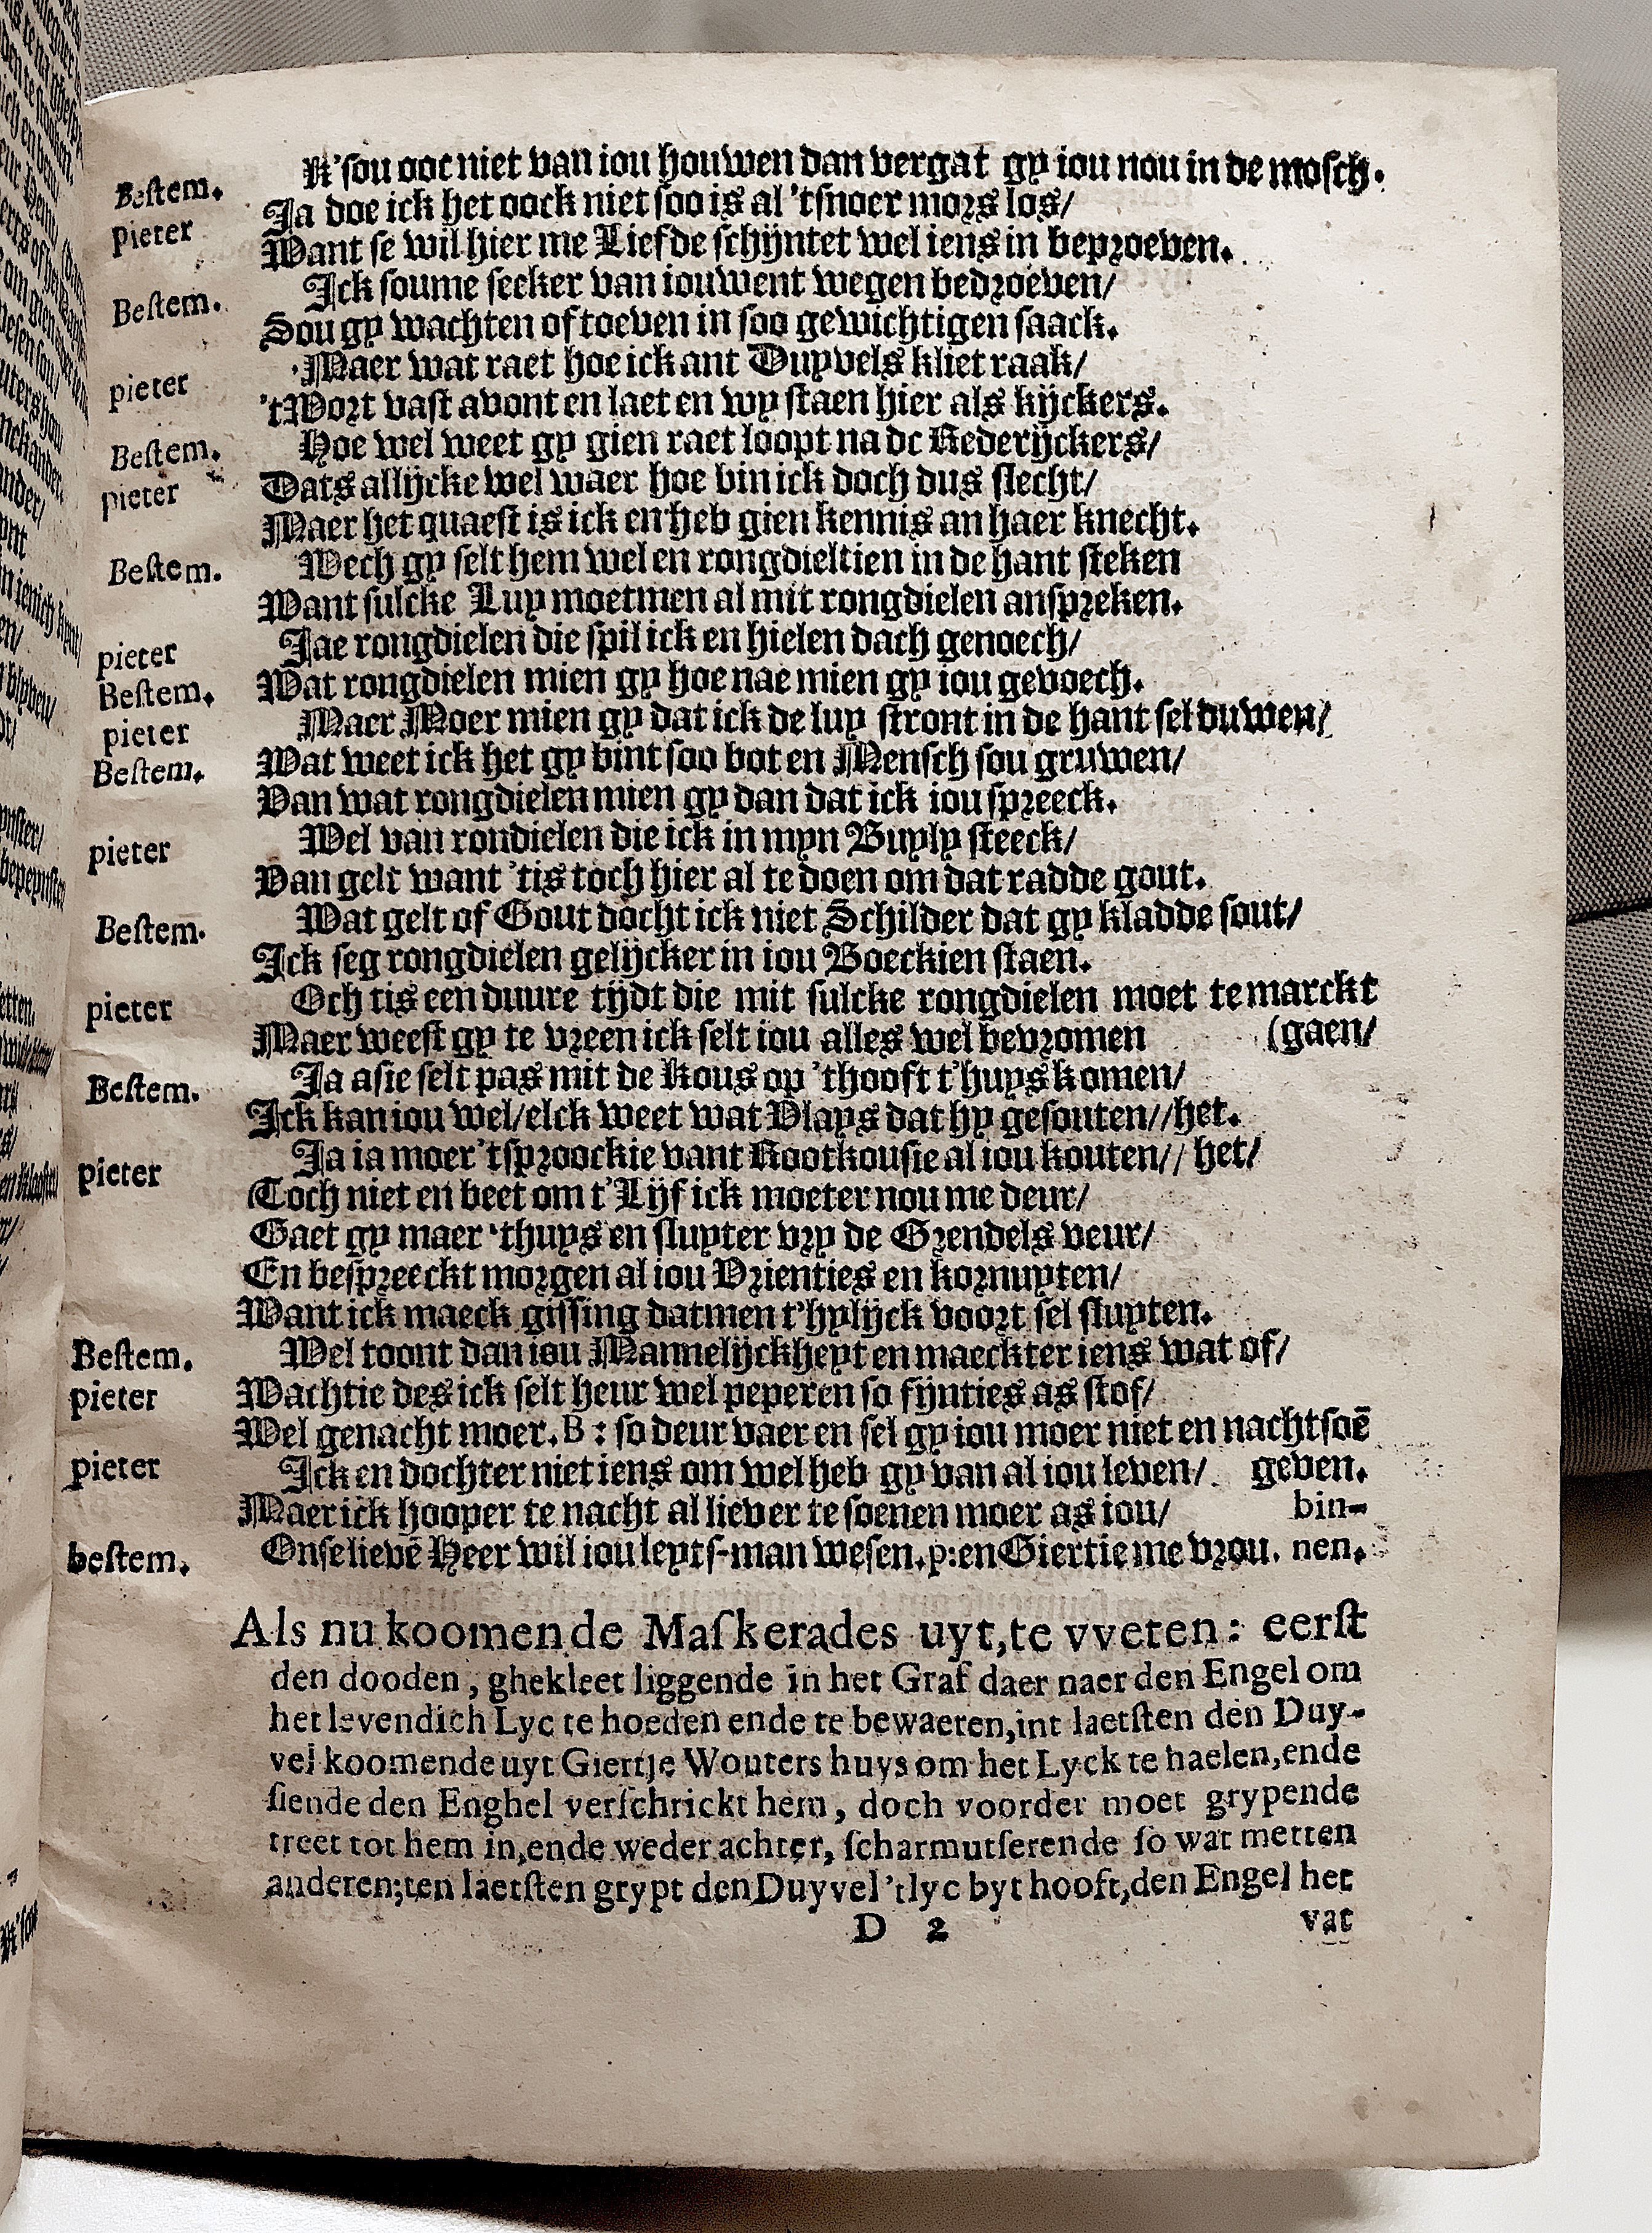 Bestem. K'sou ooc niet van iou houwen dan vergat gy iou nou in de mosch.
pieter Ja doe ick het oock niet soo is al 'tsnoer mors los/
Want se wil hier me Liefde schijntet wel iens in beproeven.
Bestem. Ick soume seeker van iouwent wegen bedroeven/
Sou gy wachten of toeven in soo gewichtigen saack.
pieter Maer wat raet hoe ick ant Duyvels kliet raak/
'tWort vast avont en laet en wy staen hier als kijckers.
Bestem. Hoe wel weet gy gien raet loopt na de Rederijckers/
pieter Dats allijcke wel waer hoe bin ick doch dus slecht/
Maer het quaest is ick en heb gien kennis an haer knecht.
Bestem. Wech gy selt hem wel en rongdieltien in de hant steken
Want sulcke Luy moetmen al mit rongdielen anspreken.
pieter Jae rongdielen die spil ick en hielen dach genoech/
Bestem. Wat rongdielen mien gy hoe nae mien gy iou gevoech.
pieter Maer Moer mien gy dat ick de luy stront in de hant sel duwen/
Bestem. Wat weet ick het gy bint soo bot en Mensch sou gruwen/
Van wat rongdielen mien gy dan dat ick iou spreeck.
pieter Wel van rondielen die ick in myn Buyly steeck/
Van gelt want 'tis toch hier al te doen om dat radde gout.
Bestem. Wat gelt of Gout docht ick niet Schilder dat gy kladde sout/
Ick seg rongdielen gelijcker in iou Boeckien staen.
pieter Och tis een duure tijdt die mit sulcke rongdielen moet te marckt
Maer weest gy te vreen ick selt iou alles wel bevromen (gaen/
Bestem. Ja asie selt pas mit de Kous op 'thooft t'huys komen/
Ick kan iou wel/elck weet wat Vlays dat hy gesouten//het.
pieter Ja ia moer 'tsproockie vant Rootkousie al iou kouten// het/
Toch niet en beet om t'Lijf ick moeter nou me deur/
Gaet gy maer 'thuys en sluyter vry de Grendels veur/
En bespreeckt morgen al iou Vrienties en kornuyten/
Want ick maeck gissing datmen t'hylijck voort sel sluyten.
Bestem. Wel toont dan iou Mannelijckheyt en maeckter iens wat of/
pieter Wachtie des ick selt heur wel peperen so fijnties as stof/
Wel genacht moer. B: so deur vaer en sel gy iou moer niet en nachtsoē
pieter Ick en dochter niet iens om wel heb gy van al iou leven/ geven.
Maer ick hooper te nacht al liever te soenen moer as iou/ bin-
bestem. Onselievē Heer wil iou leyts-man wesen. p: en Giertie me vrou. nen.
Als nu koomen de Maskerades uyt, te vveten: eerst
den dooden, ghekleet liggende in het Graf daer naer den Engel om
het levendich Lyc te hoeden ende te bewaeren, int laetsten den Duy-
vel koomende uyt Giertje Wouters huys om het Lyck te haelen, ende
siende den Enghel verschrickt hem, doch voorder moet grypende
treet tot hem in, ende weder achter, scharmutserende so wat metten
anderen; ten laetsten grypt den Duyvel 'tlyc byt hooft, den Engel het
D 2 vat